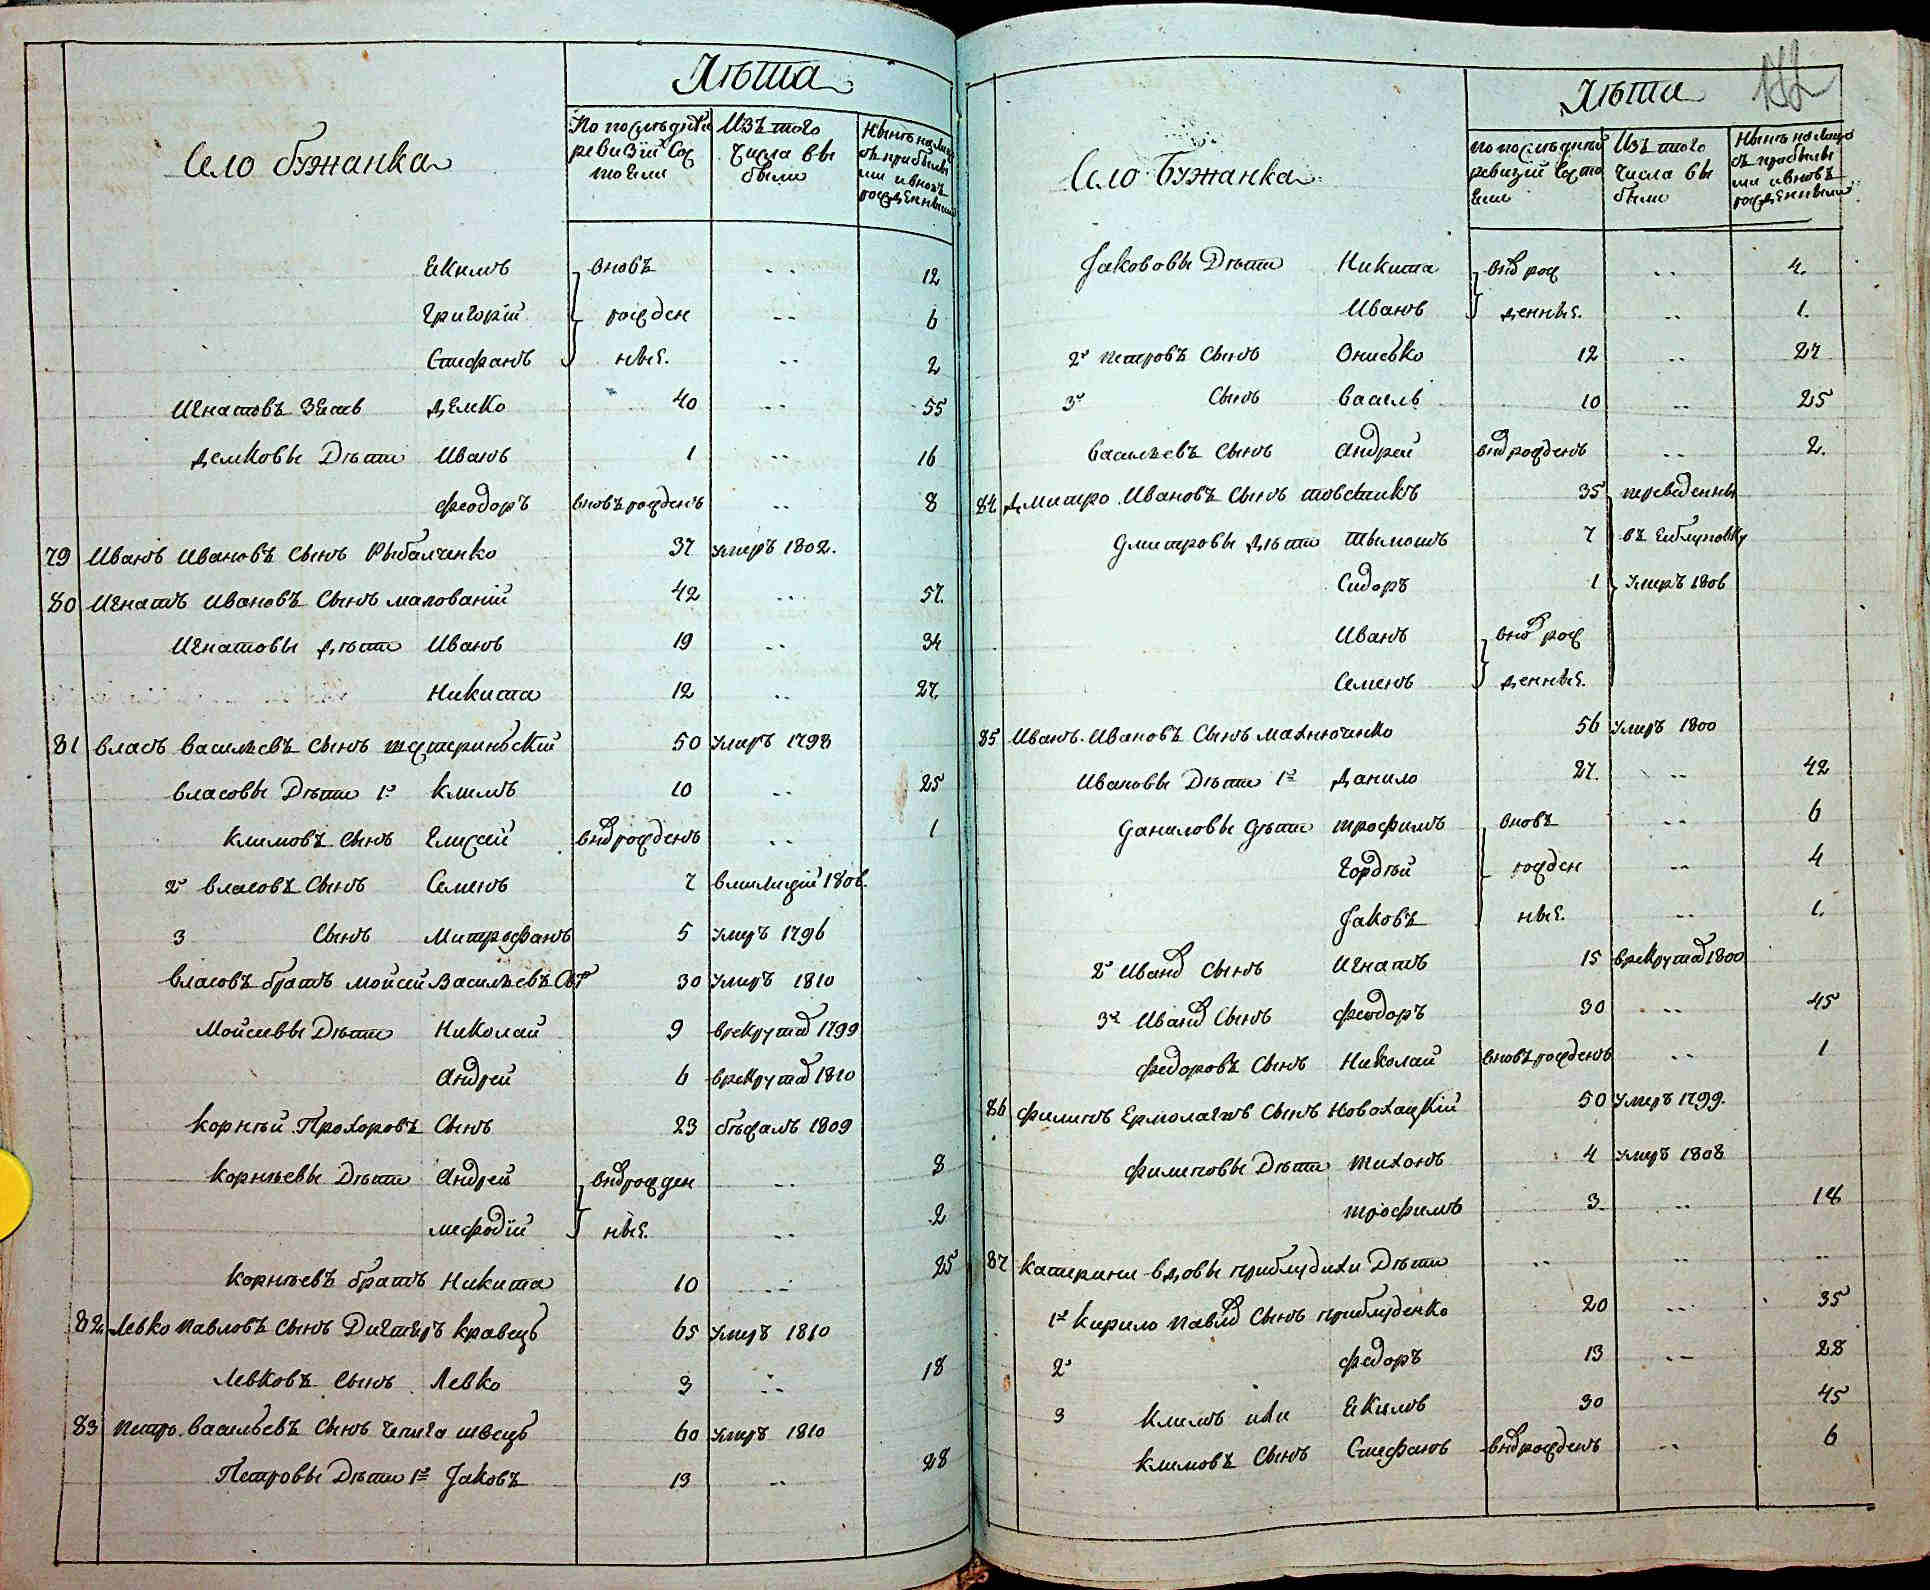 Лѣта
Село Бужанка
По последней ревизіи состояли
Изъ того числа выбыли
Нынѣ на лицо съ прибылыми и вновь рожденными
Екимъ вновь .. 12
Григорій рожден .. 6
Стефанъ ные. .. 2
Игнатовъ Зять Демко 40 .. 55
Демковы Дѣти Иванъ 1 .. 16
Феодоръ вновь рожденъ .. 8
79 Иванъ Ивановъ Сынъ Рыбалченко 37 умеръ 1802.
80 Игнатъ Ивановъ Сынъ Малованій 42 ... 57.
Игнатовы Дѣти Иванъ 19 .. 34
Никита 12 .. 27.
81 Власъ Васильевъ Сынъ 50 умеръ 1798
Власовы Дѣти 1й Климъ 10 .. 25
Климовъ Сынъ Елисей внов рожденъ .. 1
2й Власовъ Сынъ Семенъ 7 в милиціи 1806.
3 Сынъ Митрофанъ 5 умеръ 1796
Власовъ братъ Мойсей Васильевъ Сын 30 умеръ 1810
Мойсеевы Дѣти Николай 9 в рекрутах 1799
Андрей 6 в рекрутах 1810
Корнѣй Прохоровъ Сынъ 23 бѣжалъ 1809
Корнѣевы Дѣти Андрей внов рожден .. 8
Мефодій ные. .. 2
Корнѣевъ братъ Никита 10 .. 25
82 Левко Павловъ Сынъ Дигтяръ Кравецъ 65 умеръ 1810
Левковъ Сынъ Левко 3 .. 18
83 Петро Васильевъ Сынъ Чепига швецъ 60 умеръ 1810
Петровы Дѣти 1й Јаковъ 13 .. 28
Лѣта
Село Бужанка
По последней ревизіи состояли
Изъ того числа выбыли
Нынѣ на лицо съ прибылыми и вновь рожденными
Јакововы Дѣти Никита внов рож .. 4.
Иванъ денные. .. 1.
2й Петровъ Сынъ Онисько 12 .. 27
3й Сынъ Василь 10 .. 25
Васильевъ Сынъ Андрей внов рожденъ .. 2.
84 Дмитро Ивановъ Сынъ 35 переведены
Дмитровы Дѣти Тымошъ 7 въ
Сидоръ 1 умеръ 1806
Иванъ внов рож
Семенъ денные.
85 Иванъ Ивановъ Сынъ Махнюченко 56 умеръ 1800
Ивановы Дѣти 1й Данило 27. .. 42
Даниловы Дѣти Трофимъ вновь .. 6
Гордѣй рожден .. 4
Јаковъ ные. .. 1.
2й Иванов Сынъ Игнатъ 15 в рекрутах 1800
3й Иванов Сынъ Феодоръ 30 .. 45
Федоровъ Сынъ Николай вновь рожденъ .. 1
86 Филипъ Ермолаевъ Сынъ Новохацкій 50 умеръ 1799.
Филиповы Дѣти Тихонъ 4 умеръ 1808
Трофимъ 3 .. 18
87 Катерини вдовы Приблудихи Дѣти .. .. ..
1й Кирило Павлов Сынъ Приблуденко 20 .. 35
2й Федоръ 13 .. 28
3 Климъ или Екимъ 30 45
Климовъ Сынъ Стефанъ внов рожденъ .. 6